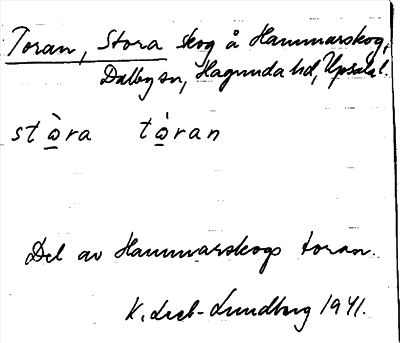 Toran, Stora skog å Hammarskog,
Dalby sn, Hagunda hd, Upsala l.
stὼ̲ra tώ̲ran
Del av Hammarskogs toran.
K. Lreb-Lundberg 1941.